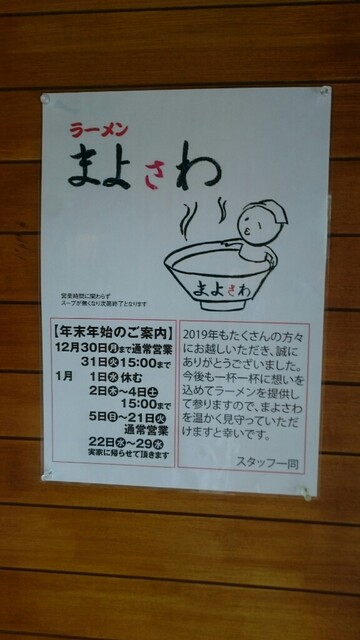 ラーメン
まよさわ
まよさわ
営業時間に関わらず
スープが無くなり次第終了となります
【年末年始のご案内】
12月30日㊊まで通常営業
31日㊋15:00まで
1月 1日㊌休む
2日㊍〜4日㊏
15:00まで
5日㊐〜21日㊋
通常営業
22日㊌〜29㊌
実家に帰らせて頂きます
2019年もたくさんの方々
にお越しいただき、誠に
ありがとうございました。
今後も一杯一杯に想いを
込めてラーメンを提供し
て参りますので、まよさわ
を温かく見守っていただ
けますと幸いです。
スタッフ一同